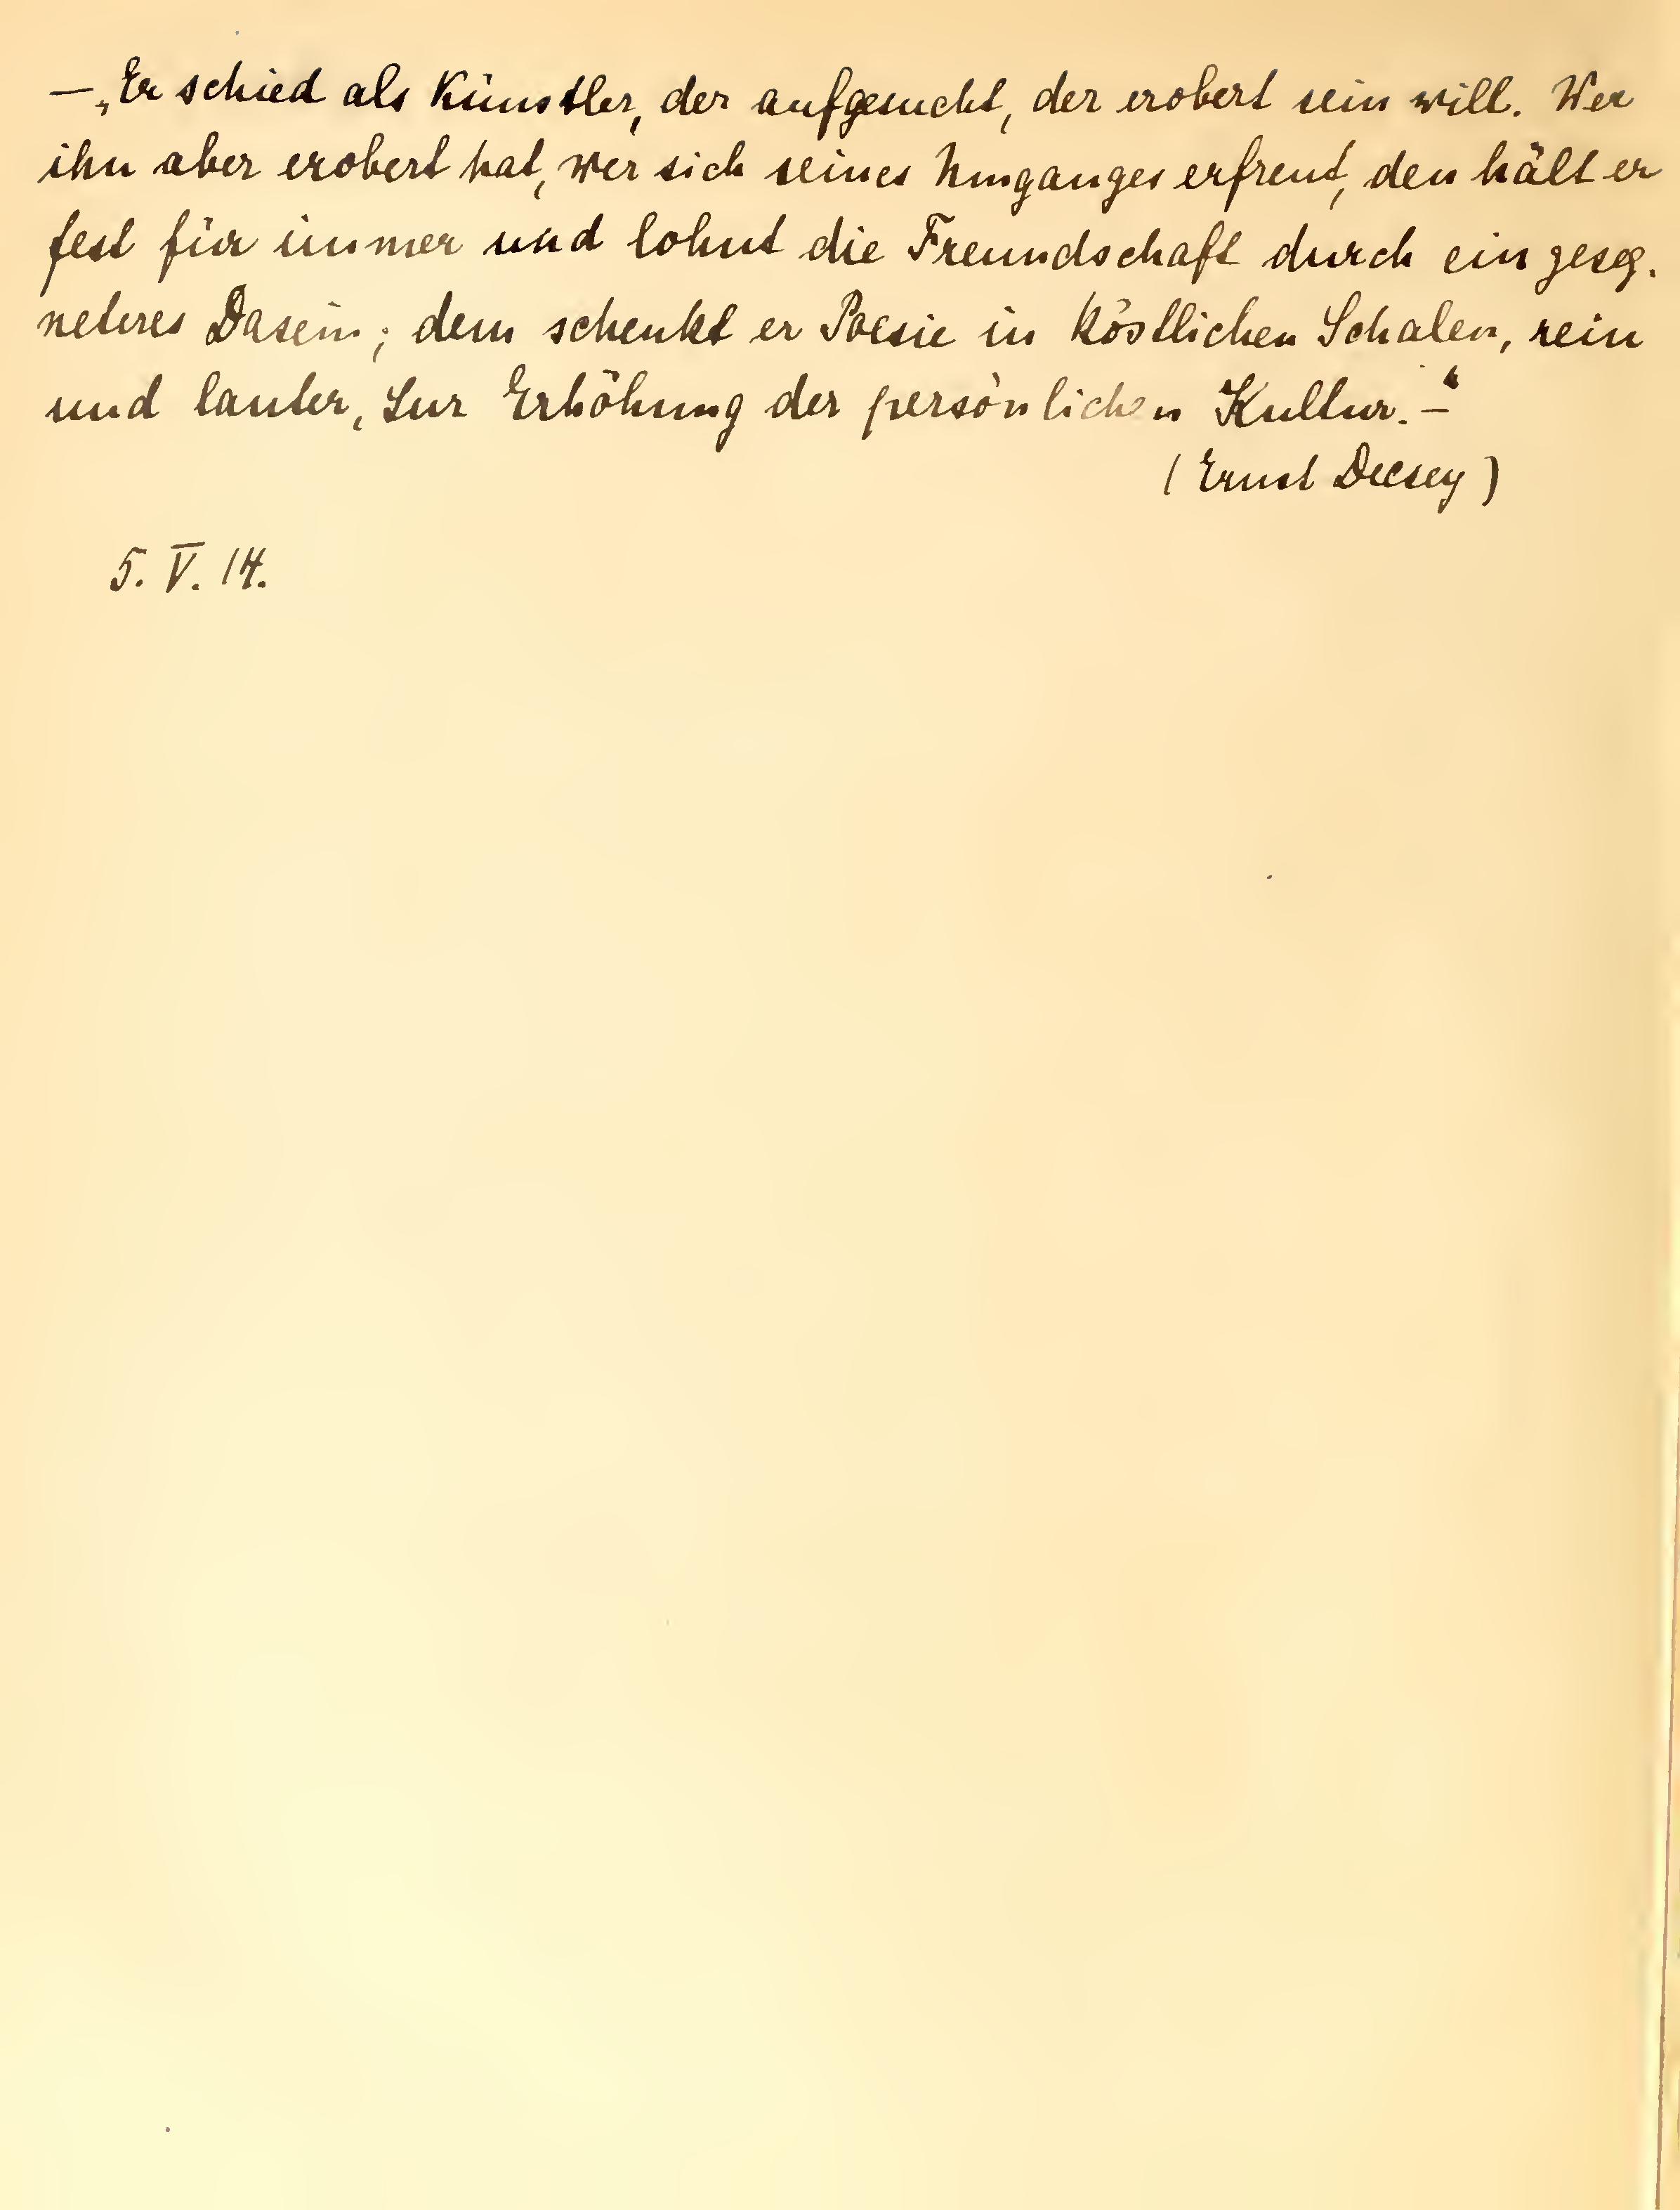 — „Er schied als Künstler, der aufgesucht, der erobert sein will. Wer
ihn aber erobert hat, wer sich seines Umganges erfreut, den hält er
fest für immer und lohnt die Freundschaft durch ein geseg-
neteres Dasein; dem schenkt er Poesie in köstlichen Schalen, rein
und lauter, zur Erhöhung der persönlichen Kultur. –“
(Ernst Decsey)
5. V. 14.